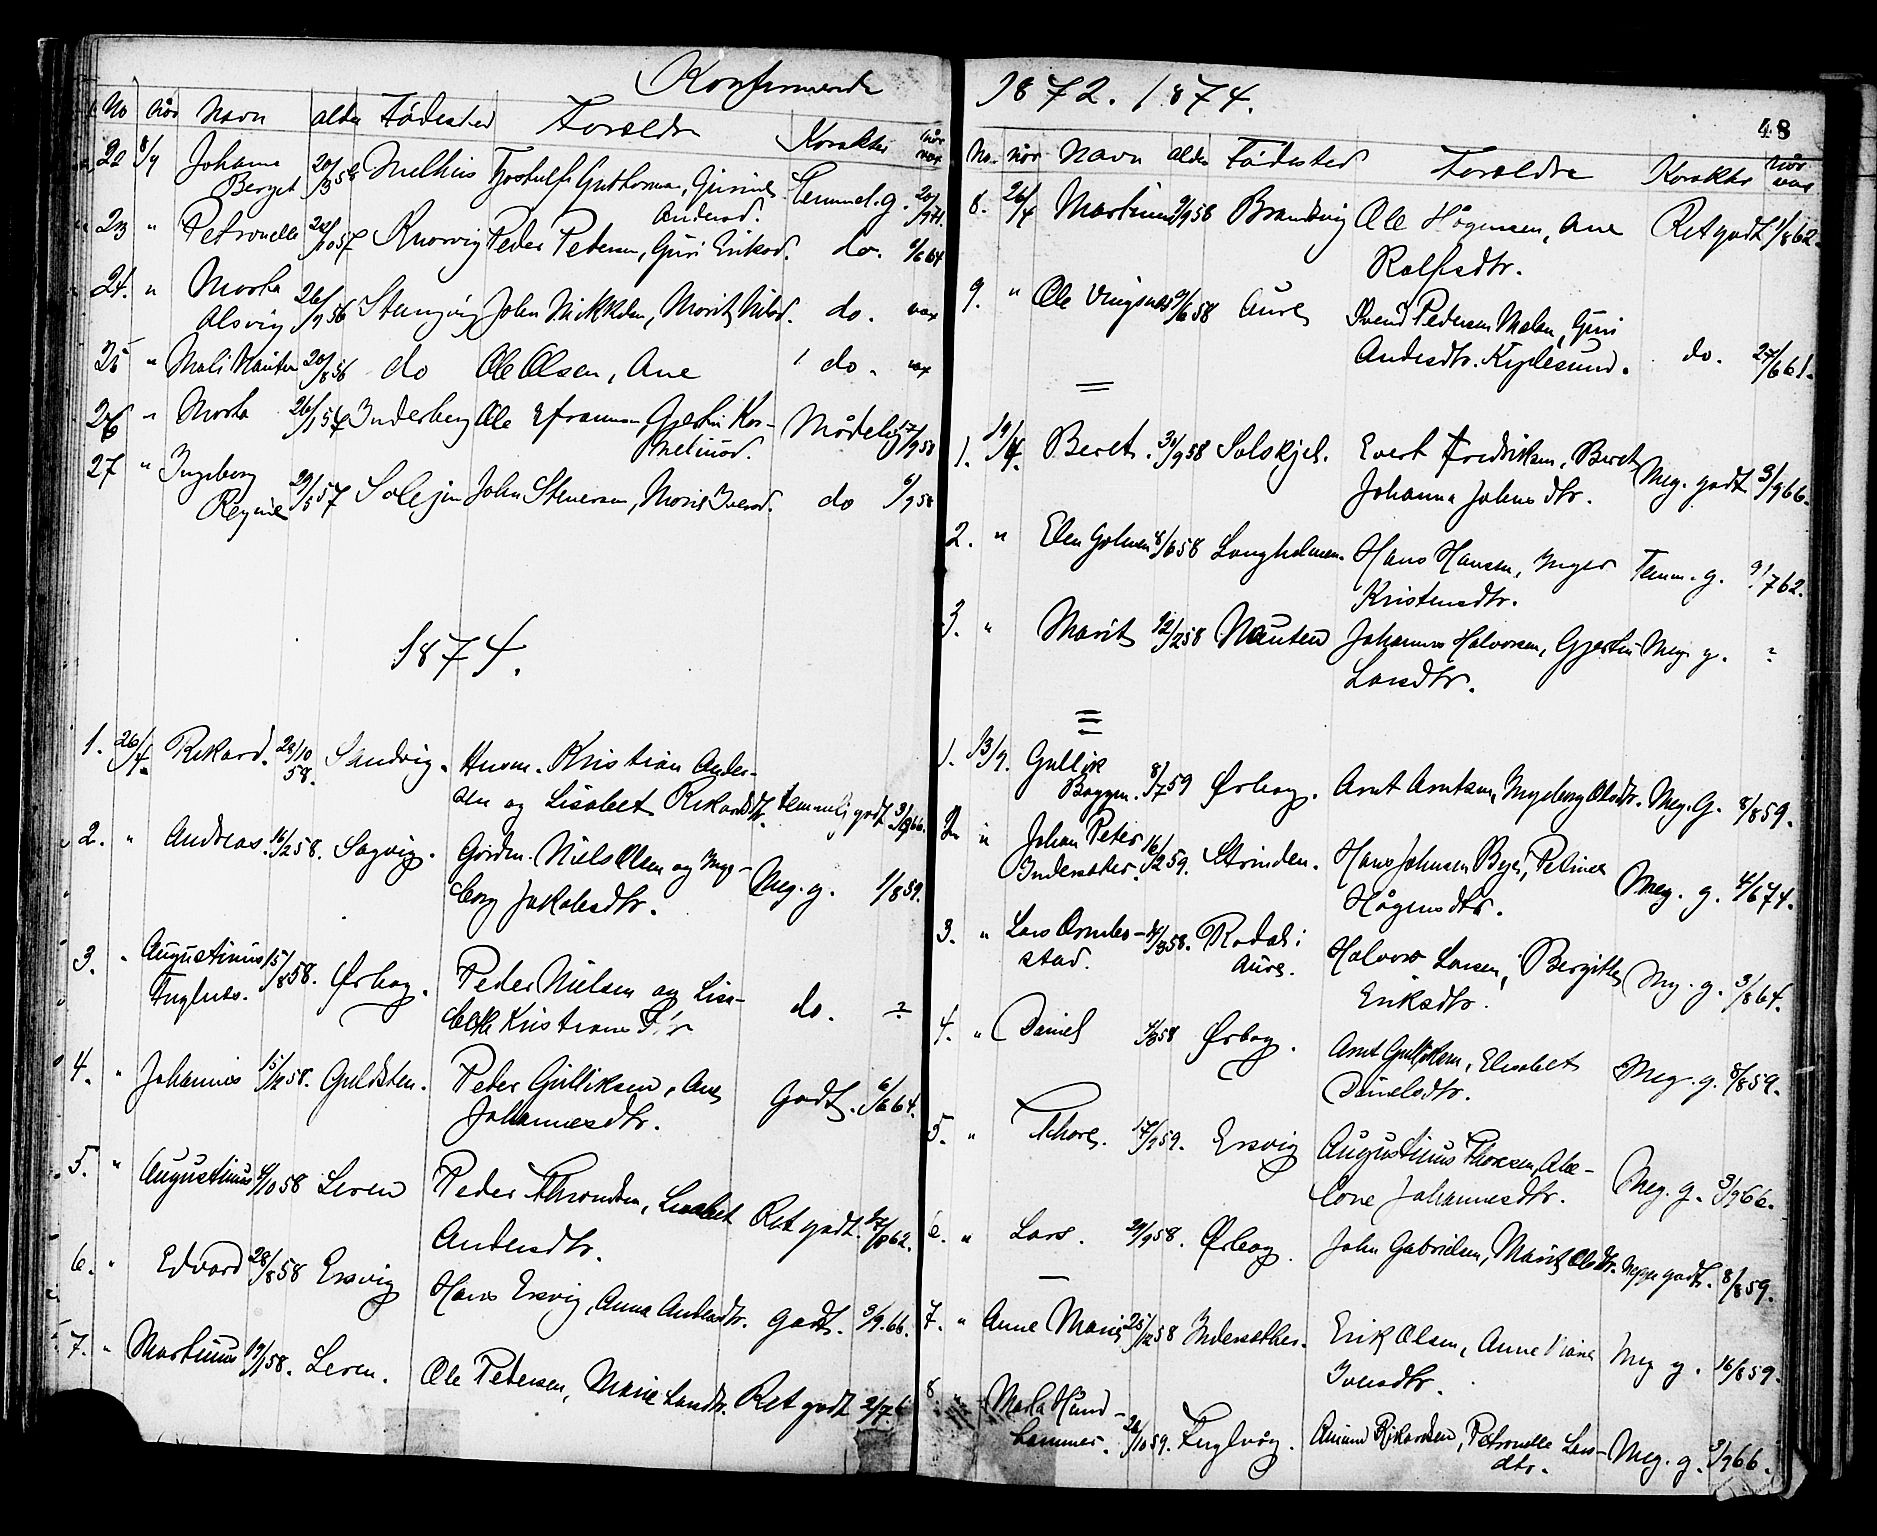 Konfirmerede
No når Navn alder Fødested Forældre Karakter når vax
22 8/9 Johanna 20/3 58 Melhus Gutthormsen,
Berget Temmel. g.
23 " Petronelle 10 57 Peder Petersen, Guri Eriksd. do. 6/6 64
24. " Marta 26/9 56 John Mikkelsen, Marit Nilsd. do. vax
Alsvig
25 " Mali Nauten 20/8 56 do Ole Olsen, Ane do. vax
26 " Marta 26/1 57 Inderberg Ole Efraimsen, Gjertin Kor-
neliusd. Mådelig
27 " Ingeborg 29/5 57 John Stenersen, Marit Iversd. do 6/9 58
Regine
1874.
1. 26/4. Rikard. 28/10 58. Sandvig. Husm. Kristian Ander-
sen og Lisabet Rikardsdtr. temmeli godt 3/9 66.
2. " Andreas. 16/2 58. Sagvig. Gårdm. Niels Olsen og Inge-
borg Jakobsdtr. Meg. g. 1/8 59.
3. " Augustinus 15/8 58. Ørbog. Peder Nielsen og Lisa-
Fuglnes. beth Kristiane do. ?
4. " Johannes 15/12 58. Guldsten. Peder Gulliksen, Ane
Johannesdtr. Godt. 6/6 64.
5. " Augustinus 4/10 58 Leren Peder Throndsen, Lisabet
Andersdtr. Ret godt. 17/8 62.
6. " Edvard 28/8 58 Ersvig Hans Ersvig, Anna Andersdtr. Godt. 3/9. 66.
7. " Martinus 19/1 58. Leren. Ole Petersen, Marie Larsdtr. Ret godt
1872. 1874.
48
No. når Navn Alder Fødested Forældre Karakter når vax
8. 26/4 Martinus 9/9 58 Brandsvig Ole Hågensen, Ane
Rolfsdtr. Ret godt 1/8 62.
9. " Ole Vingsnes 9/6 58 Aure Svend Pedersen Malen, Guri
Andersdtr. Kjglesund. do. 27/6 61.
1. 19/4. Beret. 30/9 58 Solskjel. Evert Fredriksen, Beret
Johanna Johnsdtr. Meg. godt 3/9 66.
2. " Elen Golmen 8/6 58 Langholmen. Hans Hansen, Inger
Kristensdtr. Temm. g. 9/7 62.
3. " Marit 12/2 58 Nauten Johannes Halvorsen, Gjertin
Larsdtr. Meg. g. ?
1. 13/9. Gullik 8/7 59 Ørbog. Arnt Arntsen, Ingeborg Olsdtr. Meg. G. 8/8 59.
Boggen.
2. " Johan Peter 16/12 59. Strinden. Hans Johnsen Bye, Petrine
Indersæther. Hågensdtr. Meg. g. 4/6 74.
3. " Lars Ormbo- 58. Rodal i Halvor Larsen, Bergitte
stad. Aure. Eriksdtr. Mg. g. 3/8 64.
4. " Daniel 58 Ørbog. Arnt Gulliksen, Elisabet
Danielsdtr. Meg. g. 8/8 59.
5. " Thore. 17/2 59. Ersvig Augustinus Thoresen, Abe-
lone Johannesdtr. Meg. g. 3/9 66.
6. " Lars. 29/9 58. Ørbog. John Gabrielsen, Marit Olsdtr. Meget godt. 8/8 59.
7. " Anne Marie 25/12 58 Indersæther. Erik Olsen, Anne
Iversdtr. Meg g. 16/8 59.
8 " Marta Hånd-
hammer. 28/10 59. Fuglvåg. Amund Rikardsen, Petronelle Lars-
dtr. Meg. g. 3/9 66.